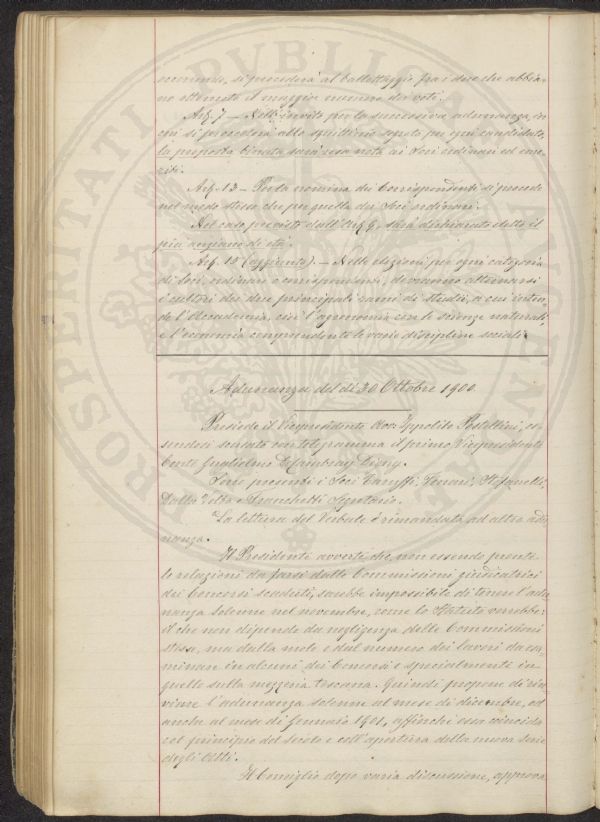 numero, si procederà al ballottaggio fra i due che abbia-
no ottenuto il maggior numero dei voti.
Art. 7 — Nell'invito per la successiva adunanza, in
cui si procederà allo squittinio segreto per ogni candidato,
la proposta firmata sarà resa nota ai Soci ordinari ed eme-
riti.
Art. 13 — Per la nomina dei Corrispondenti si procede
nel modo stesso che per quella dei Soci ordinari.
Nel caso previsto dall'Art. 9, sarà dichiarato eletto il
più anziano di età.
Art. 15 (aggiunto). — Nelle elezioni per ogni categoria
di Soci, ordinari e corrispondenti, dovranno alternarsi
i cultori dei due principali rami di Studii, a cui inten-
de l'Accademia, cioè l'agronomia con le scienze naturali,
e l'economia comprendente le varie discipline sociali.
Adunanza del dì 20 Ottobre 1900.
Presiede il Vicepresidente Avv. Ippolito Pestellini, es-
sendosi scusato con telegramma il primo Vicepresidente
Conte Guglielmo Cambray Digny.
Sono presenti i Soci Caruso, Ferrari, Stefanelli,
Dalla Volta e Franchetti Segretario.
La lettura del Verbale è rimandata ad altra adu-
nanza.
Il Presidente avverte che, non essendo pronte
le relazioni da farsi dalle Commissioni giudicatrici
dei Concorsi scaduti, sarebbe impossibile di tenere l'adu-
nanza solenne nel novembre, come lo Statuto vorrebbe:
il che non dipende da negligenza delle Commissioni
stesse, ma dalla mole e dal numero dei lavori da esa-
minare in alcuni dei Concorsi e specialmente in
quello sulla mezzeria toscana. Quindi propone di rin-
viare l'adunanza solenne al mese di dicembre, od
anche al mese di Gennaio 1901, affinchè essa coincida
col principio del secolo e coll'apertura della nuova serie
degli Atti.
Il Consiglio dopo varia discussione, approva
PROSPERITATI PVBLICAE AVGENDAE